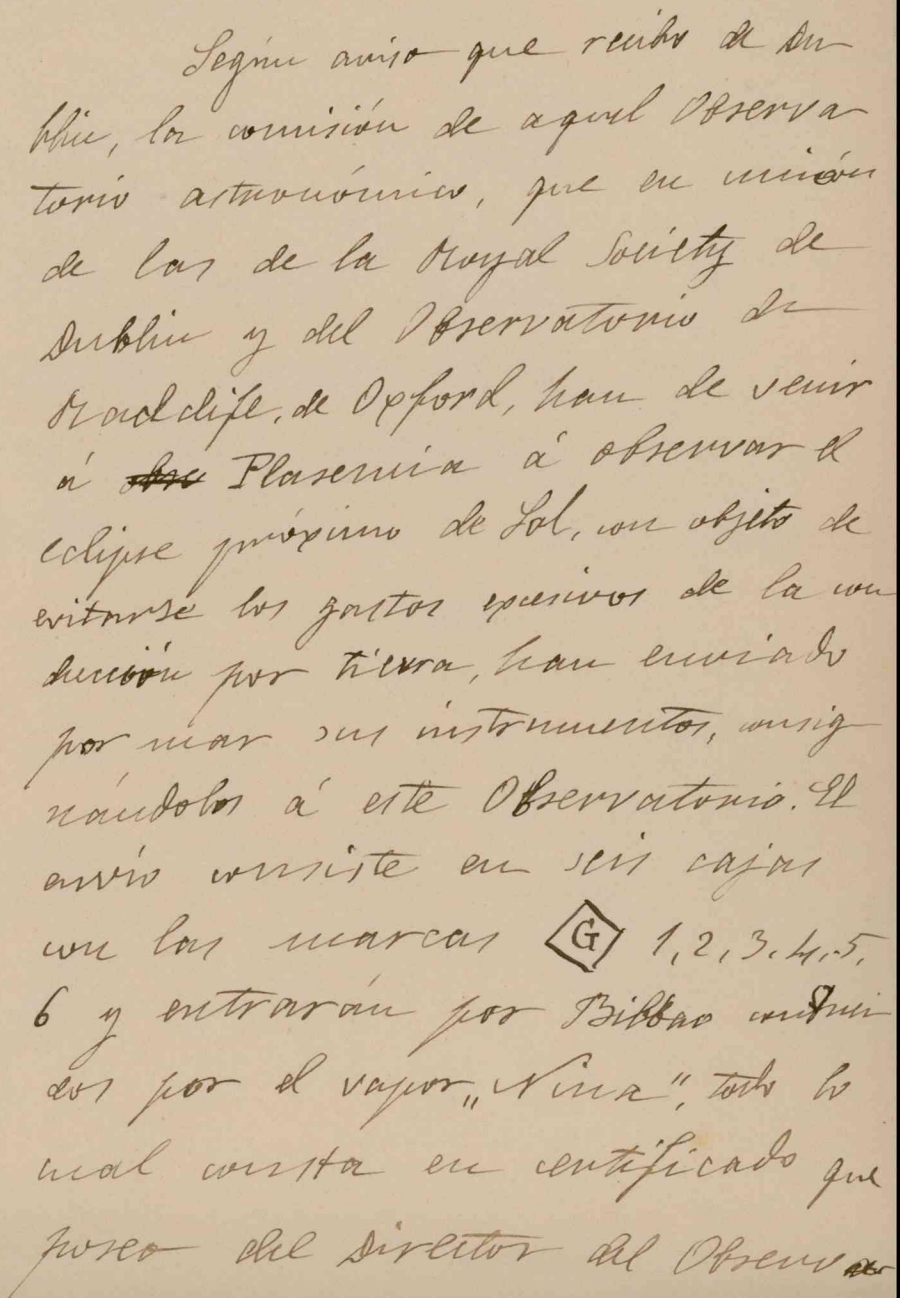 Según aviso que recibo de Du
blin, la comisión de aquel Observa
torio astronómico, que en unión
de las de la Royal Society de
Dublin y del Observatorio de
Radclife, de Oxford, han de venir
á obse Plasencia á observar el
eclipse próximo de Sol, con objeto de
evitarse los gastos excesivos de la con
ducción por tierra, han enviado
por mar sus instrumentos, consig
nándolos á este Observatorio. El
envío consiste en seis cajas
con las marcas G 1, 2, 3, 4, 5,
6 y entrarán por Bilbao conduci
dos por el vapor „Nina", todo lo
cual consta en certificado que
poseo del Director del Observa